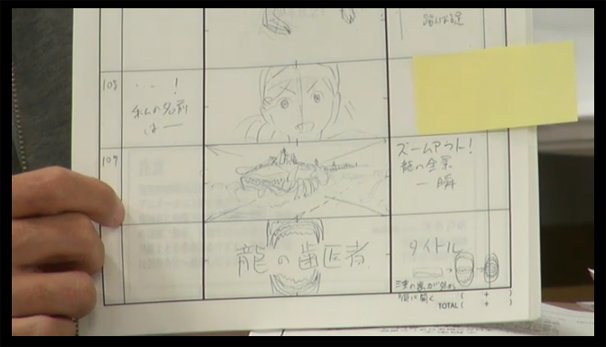 108
…!
私の名前
は—
109
ズームアウト!
龍の全景
一瞬
龍の歯医者
タイトル
TOTAL ( + )